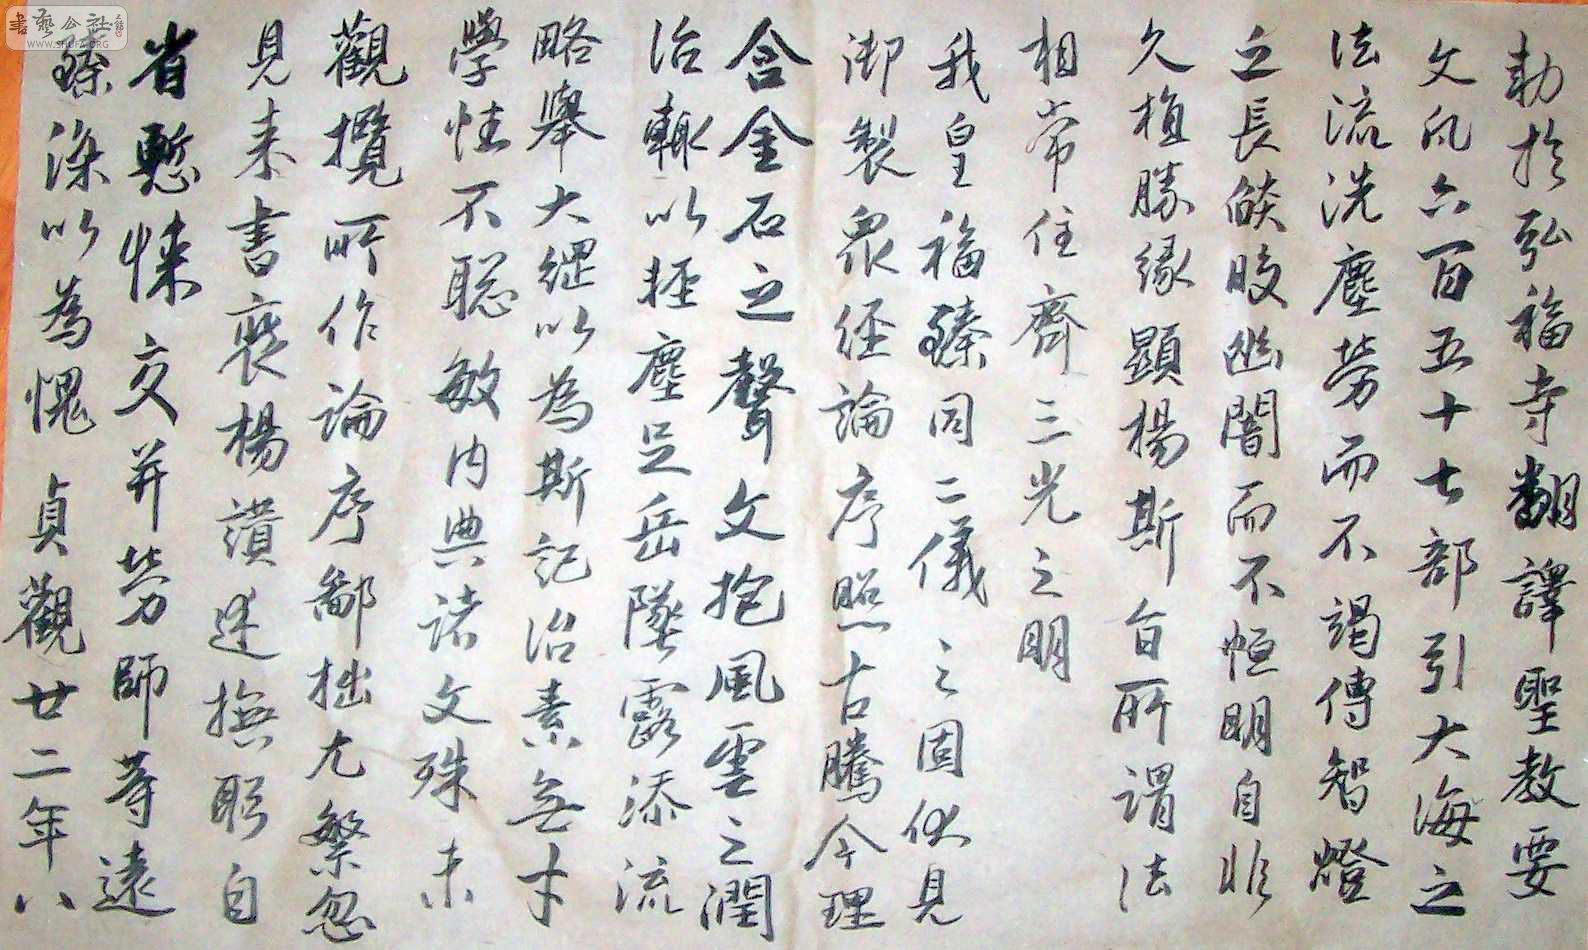 勅於弘福寺翻譯聖教要
文凡六百五十七部引大海之
法流洗塵勞而不竭傳智燈
之長燄皎幽闇而不恒明自非
久植勝緣顯揚斯旨所謂法
相常住齊三光之明
我皇福臻同二儀之固伏見
御製眾經論序照古騰今理
含金石之聲文抱風雲之潤
治輒以輕塵足岳墜露添流
略舉大綱以為斯記治素無才
學性不聰敏內典諸文殊未
觀攬所作論序鄙拙尤繁忽
見來書褒揚讚述撫躬自
省慙悚交并勞師等遠
臻深以為愧 貞觀廿二年八
書藝公社
WWW.SHUFA.ORG